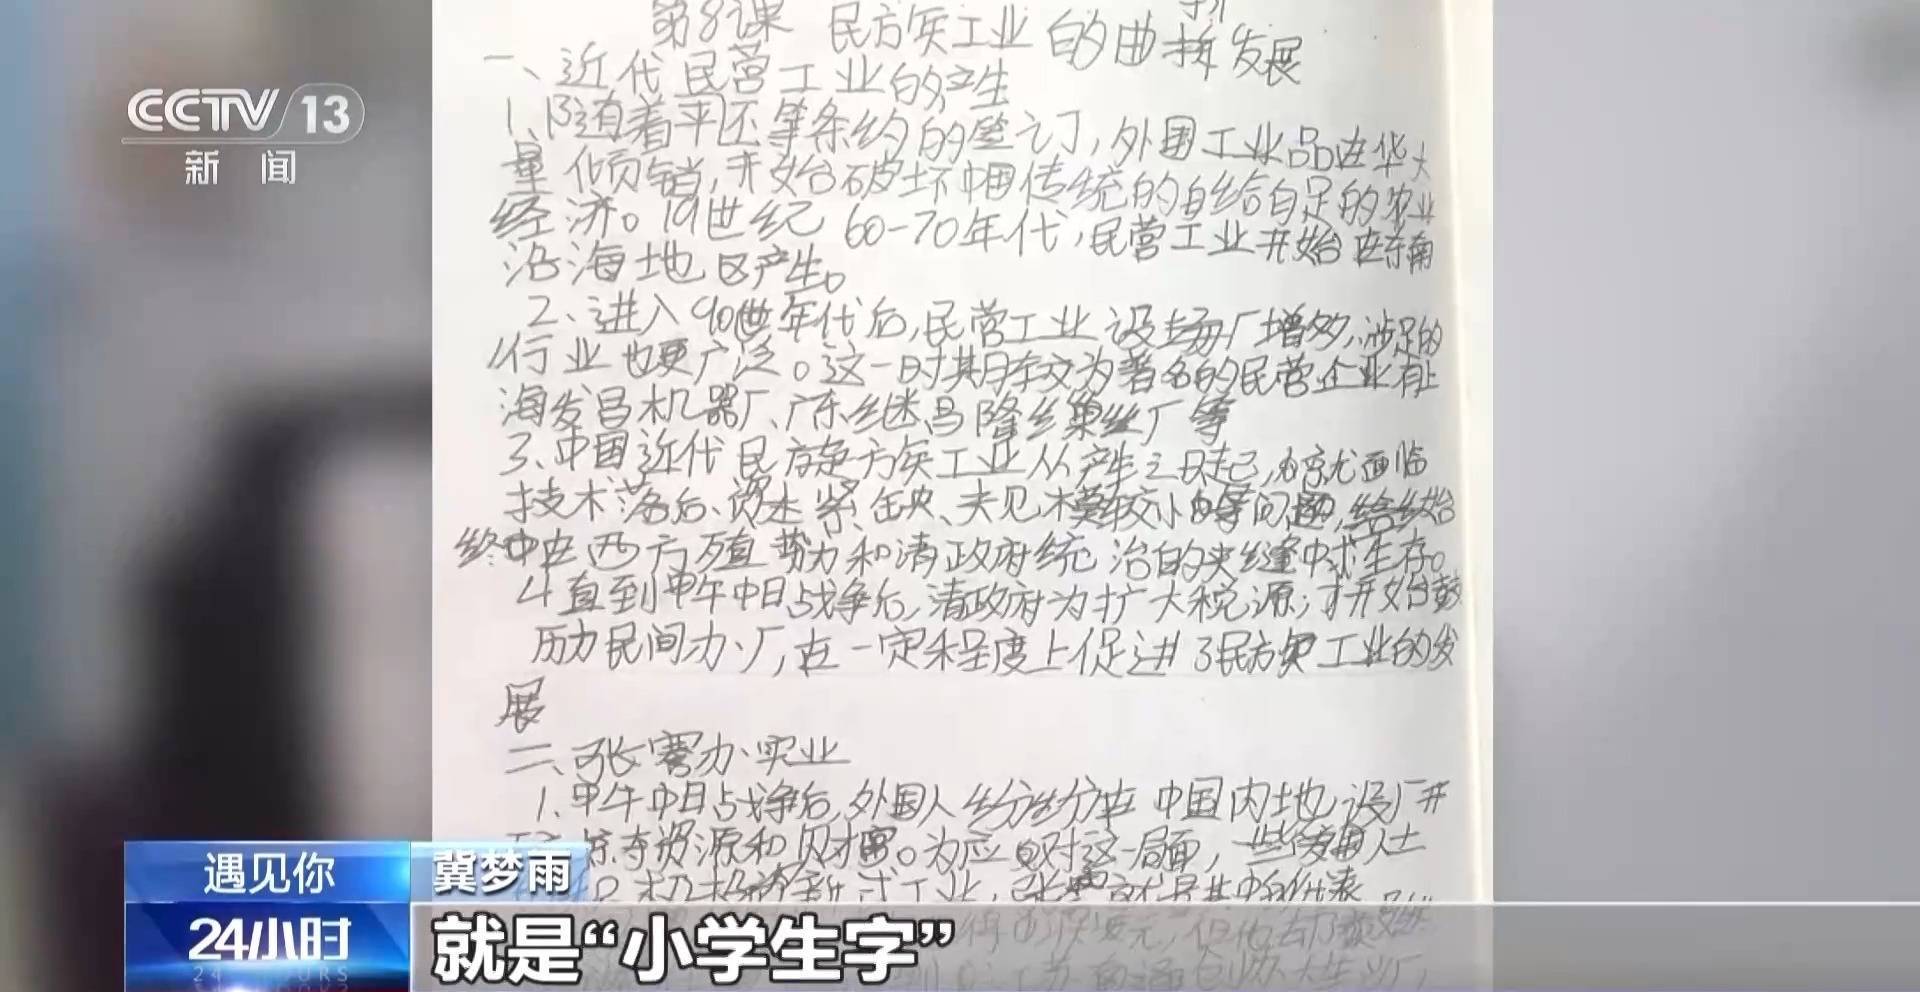 CCTV 13
新闻
第8课 民族工业的曲折发展
一、近代民营工业的产生
1、随着平还等条约的签订，外国工业品在华大
量倾销，开始破坏中国传统的自给自足的农业
经济。19世纪60-70年代，民营工业开始在东南
沿海地区产生。
2、进入90世年代后，民营工业设场厂增多，涉足的
行业也更广泛。这一时期较为著名的民营企业有上
海发昌机器厂、广东继昌隆缫丝厂等
3、中国近代民族工业从产生之日起，就面临
技术落后、资本紧缺、规模较小等问题，始
终在西方殖势力和清政府统治的夹缝中求生存。
4直到甲午中日战争后，清政府为扩大税源，才开始鼓
历力民间办厂，在一定程度上促进了民族工业的发
展
二、张謇办实业
1、甲午中日战争后，外国人纷纷在中国内地设厂开
掠夺资源和财富。为应对这一局面，一些爱国人士
遇见你
冀梦雨
24小时
24 HOURS
就是“小学生字”